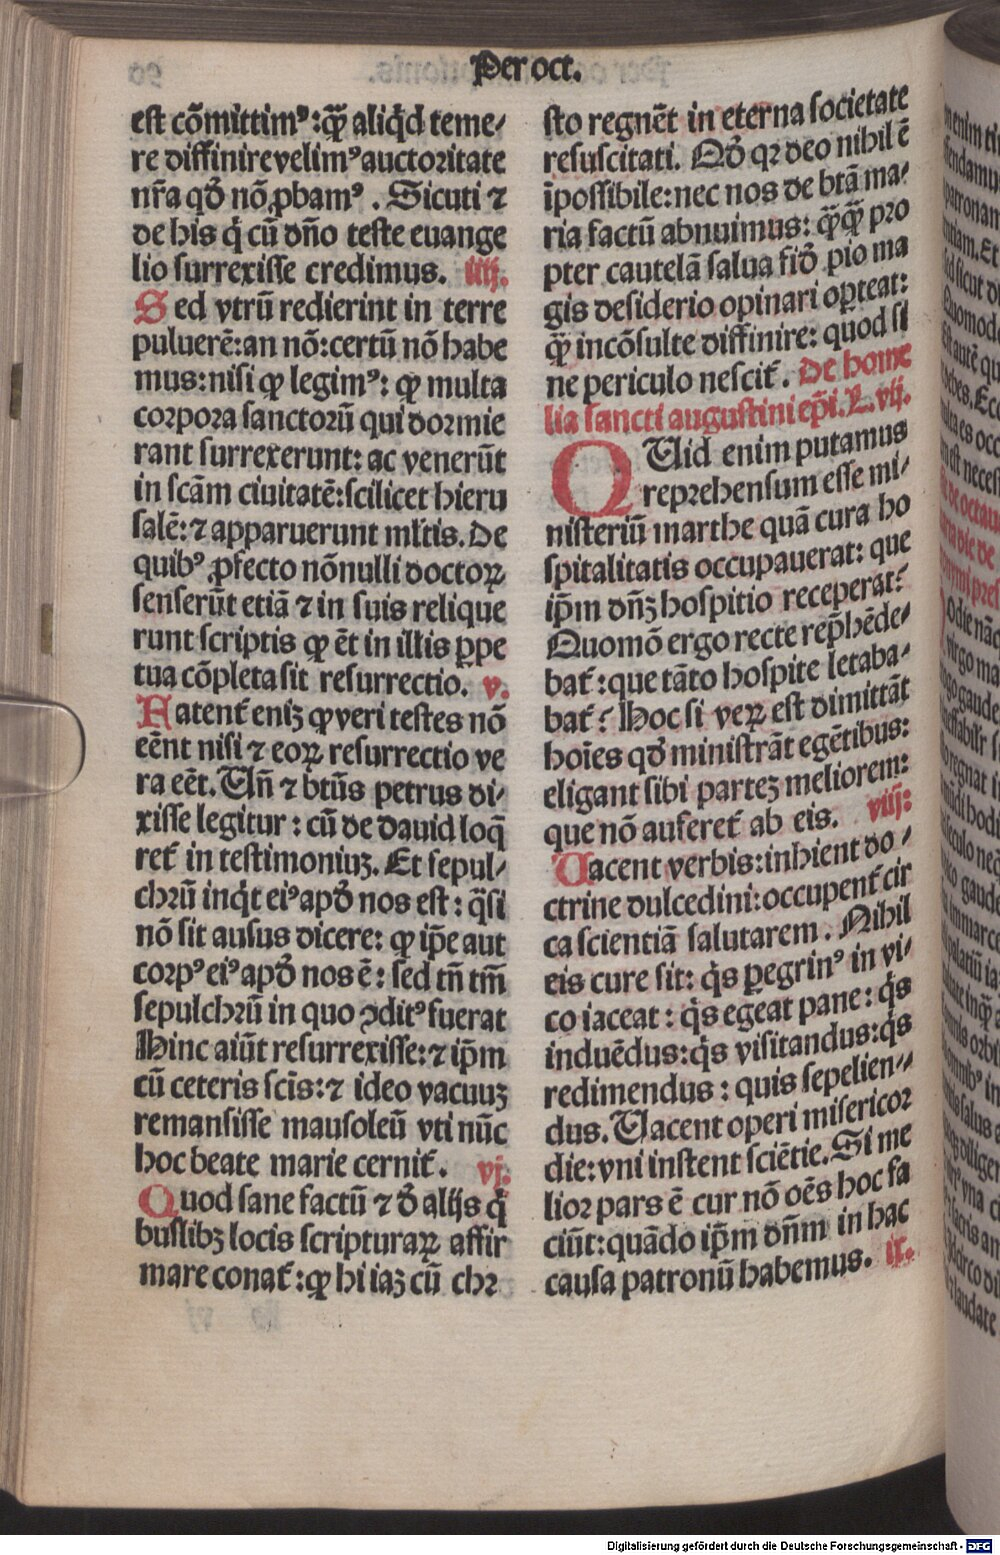 Per oct.
est cõmittimꝰ: qꝫ̃ aliq̃d teme⸗
re diffinire velimꝰ auctoritate
nr̃a qd̃ nõ ꝓbamꝰ. Sicuti ⁊
de his q̃ cũ dño teste euange
lio surrexisse credimus. iiij.
Sed vtrũ redierint in terre
puluerẽ: an nõ: certũ nõ habe
mus: nisi ꝙ legimꝰ: ꝙ multa
corpora sanctorũ qui dormie
rant surrexerunt: ac venerũt
in scãm ciuitatẽ: scilicet hieru
salẽ: ⁊ apparuerunt ml̃tis. De
quibꝰ ꝓfecto nõnulli doctoꝝ
senserũt etiã ⁊ in suis relique
runt scriptis ꝙ ẽt in illis ꝑpe
tua cõpleta sit resurrectio. v.
Fatent᷑ eniꝫ ꝙ veri testes nõ
eẽnt nisi ⁊ eoꝝ resurrectio ve
ra eẽt. Uñ ⁊ btũs petrus di⸗
xisse legitur: cũ de dauid loq̃
ret᷑ in testimoniuꝫ. Et sepul⸗
chrũ inq̃t eiꝰ apd̃ nos est: q̃si
nõ sit ausus dicere: ꝙ ip̃e aut
corpꝰ eiꝰ apd̃ nos ẽ: sed tñ tm̃
sepulchrũ in quo ↄditꝰ fuerat
Hinc aiũt resurrexisse: ⁊ ip̃m
cũ ceteris scĩs: ⁊ ideo vacuuꝫ
remansisse mausoleũ vti nũc
hoc beate marie cernit᷑. vj.
Quod sane factũ ⁊ d̃ alijs q̃
buslibꝫ locis scripturaꝝ affir
mare conat᷑: ꝙ hi iaꝫ cũ chr
sto regnẽt in eterna societate
resuscitati. Qd̃ qꝛ deo nihil ẽ
ĩpossibile: nec nos de btã ma⸗
ria factũ abnuimus: q̃ꝫq̃ꝫ pro
pter cautelã salua fid̃ pio ma
gis desiderio opinari oꝑteat:
qꝫ̃ incõsulte diffinire: quod si
ne periculo nescit᷑. De home
lia sancti augustini ep̃i. L. vij.
QUid enim putamus
reprehensum esse mi⸗
nisteriũ marthe quã cura ho
spitalitatis occupauerat: que
ip̃m dñꝫ hospitio receperat?
Quomõ ergo recte rep̃hẽde⸗
bat᷑: que tãto hospite letaba⸗
bat᷑? Hoc si veꝝ est dimittãt
hoĩes qd̃ ministrãt egẽtibus:
eligant sibi parteꝫ meliorem:
que nõ auferet᷑ ab eis. viij:
Uacent verbis: inhient do⸗
ctrine dulcedini: occupent᷑ cir
ca scientiã salutarem. Nihil
eis cure sit: q̃s ꝑegrinꝰ in vi⸗
co iaceat: q̃s egeat pane: q̃s
induẽdus: q̃s visitandus: q̃s
redimendus: quis sepelien⸗
dus. Uacent operi misericor
die: vni instent sciẽtie. Si me
lior pars ẽ cur nõ oẽs hoc fa
ciũt: quãdo ip̃m dñm in hac
causa patronũ habemus. ix.
Digitalisierung gefördert durch die Deutsche Forschungsgemeinschaft - DFG